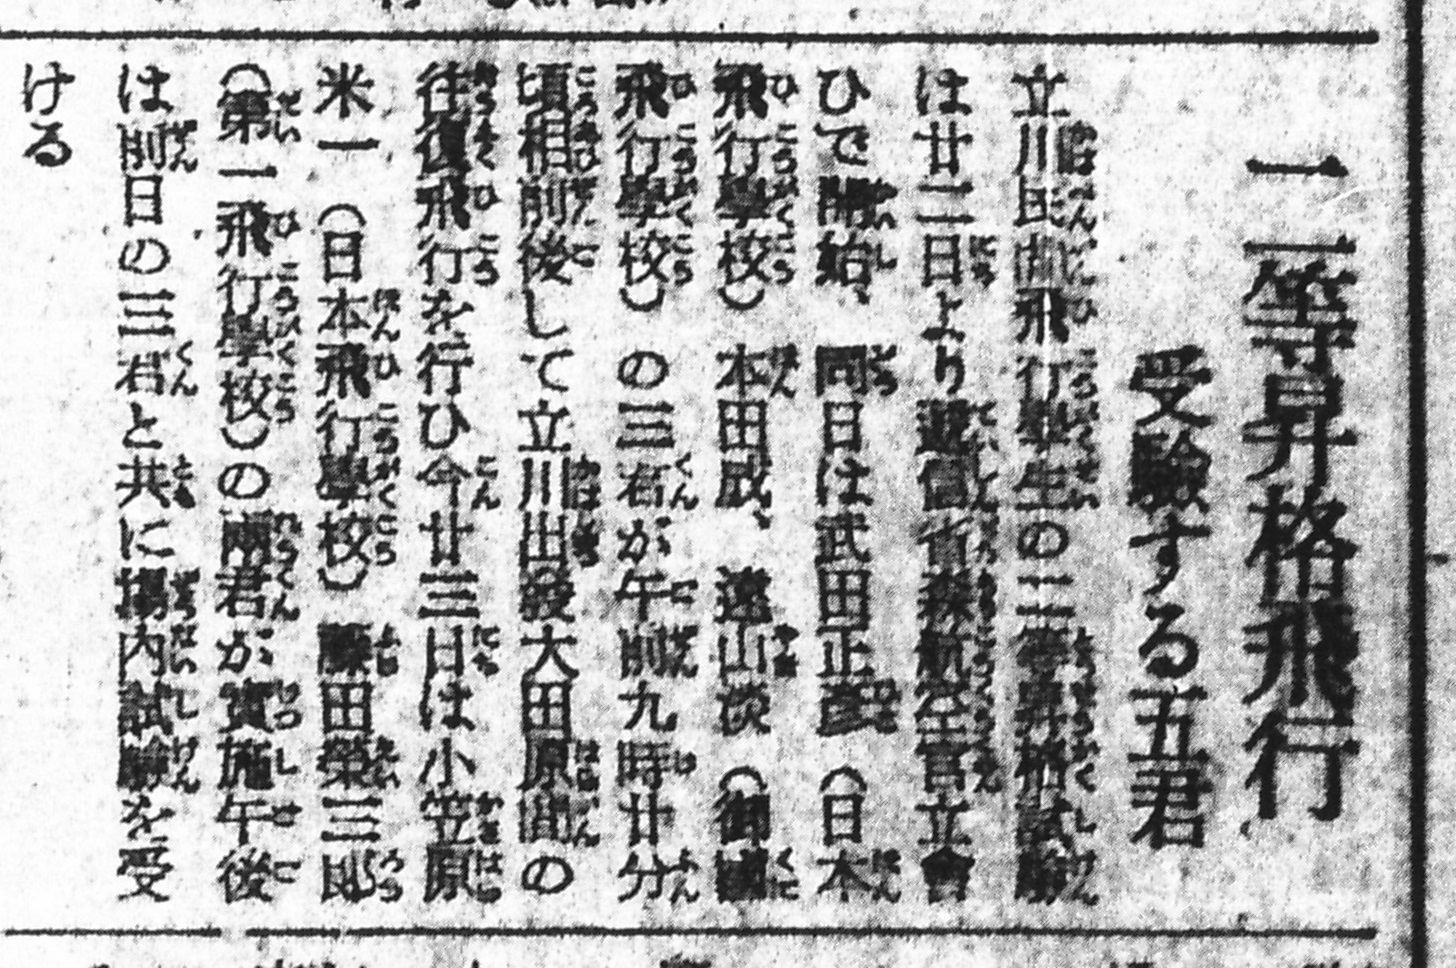 二等昇格飛行
受驗する五君
立川民間飛行學生の二等昇格試驗
は廿二日より遞信省森航空官立會
ひで開始、同日は武田正彦（日本
飛行學校）本田成、遠山淡（御國
飛行學校）の三君が午前九時廿分
頃相前後して立川出發大田原間の
往復飛行を行ひ今廿三日は小笠原
米一（日本飛行學校）藤田榮三郎
（第一飛行學校）の兩君が實施午後
は前日の三君と共に場内試驗を受
ける